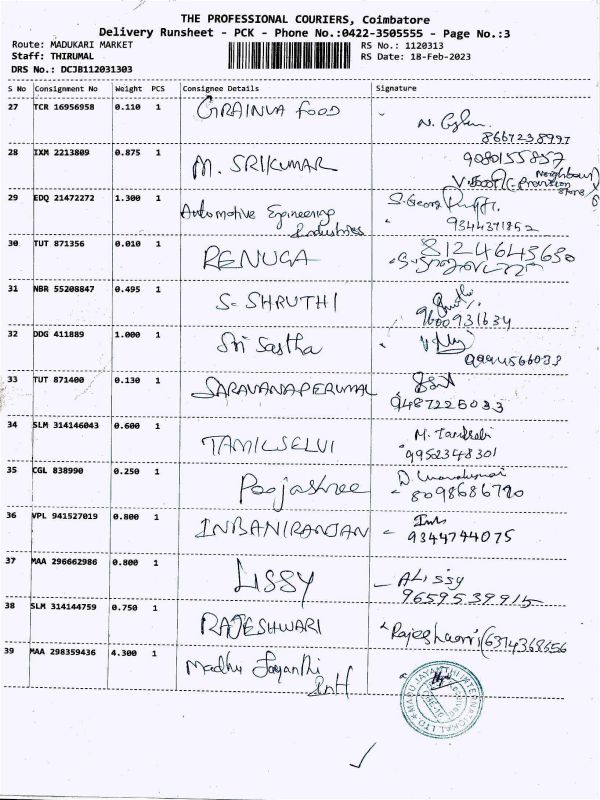 THE PROFESSIONAL COURIERS, Coimbatore
Delivery Runsheet - PCK - Phone No.:0422-3505555 - Page No.:3
Route: MADUKARI MARKET RS No.: 1120313
Staff: THIRUMAL RS Date: 18-Feb-2023
DRS No.: DCJB112031303
S No Consignment No Weight PCS Consignee Details Signature
27 TCR 16956958 0.110 1 GRAINVA FOOD
8667238997
28 IXM 2213809 0.875 1 M. SRIKUMAR 9080155857
Neighbour
store
29 EDQ 21472272 1.300 1 Automotive Engineering S. Georg
Industries 9344371852
30 TUT 871356 0.010 1 RENUGA 8124643630
31 NBR 55208847 0.495 1 S. SHRUTHI
9600931634
32 DDG 411889 1.000 1 Sri Sastha
9994566033
33 TUT 871400 0.130 1 SARAVANAPERUMAL
9487225033
34 SLM 314146043 0.600 1 TAMILSELVI M.
9952348301
35 CGL 838990 0.250 1 Poojashree D.
8098686790
36 VPL 941527019 0.800 1 INBANIRANJAN
9344744075
37 MAA 296662986 0.800 1 LISSY A Lissy
9659539915
38 SLM 314144759 0.750 1 RAJESHWARI Rajeshwari 6374368656
39 MAA 298359436 4.300 1 Madhu Jayanthi
Int
MADU JAYANTHI INTERNATIONAL LTD